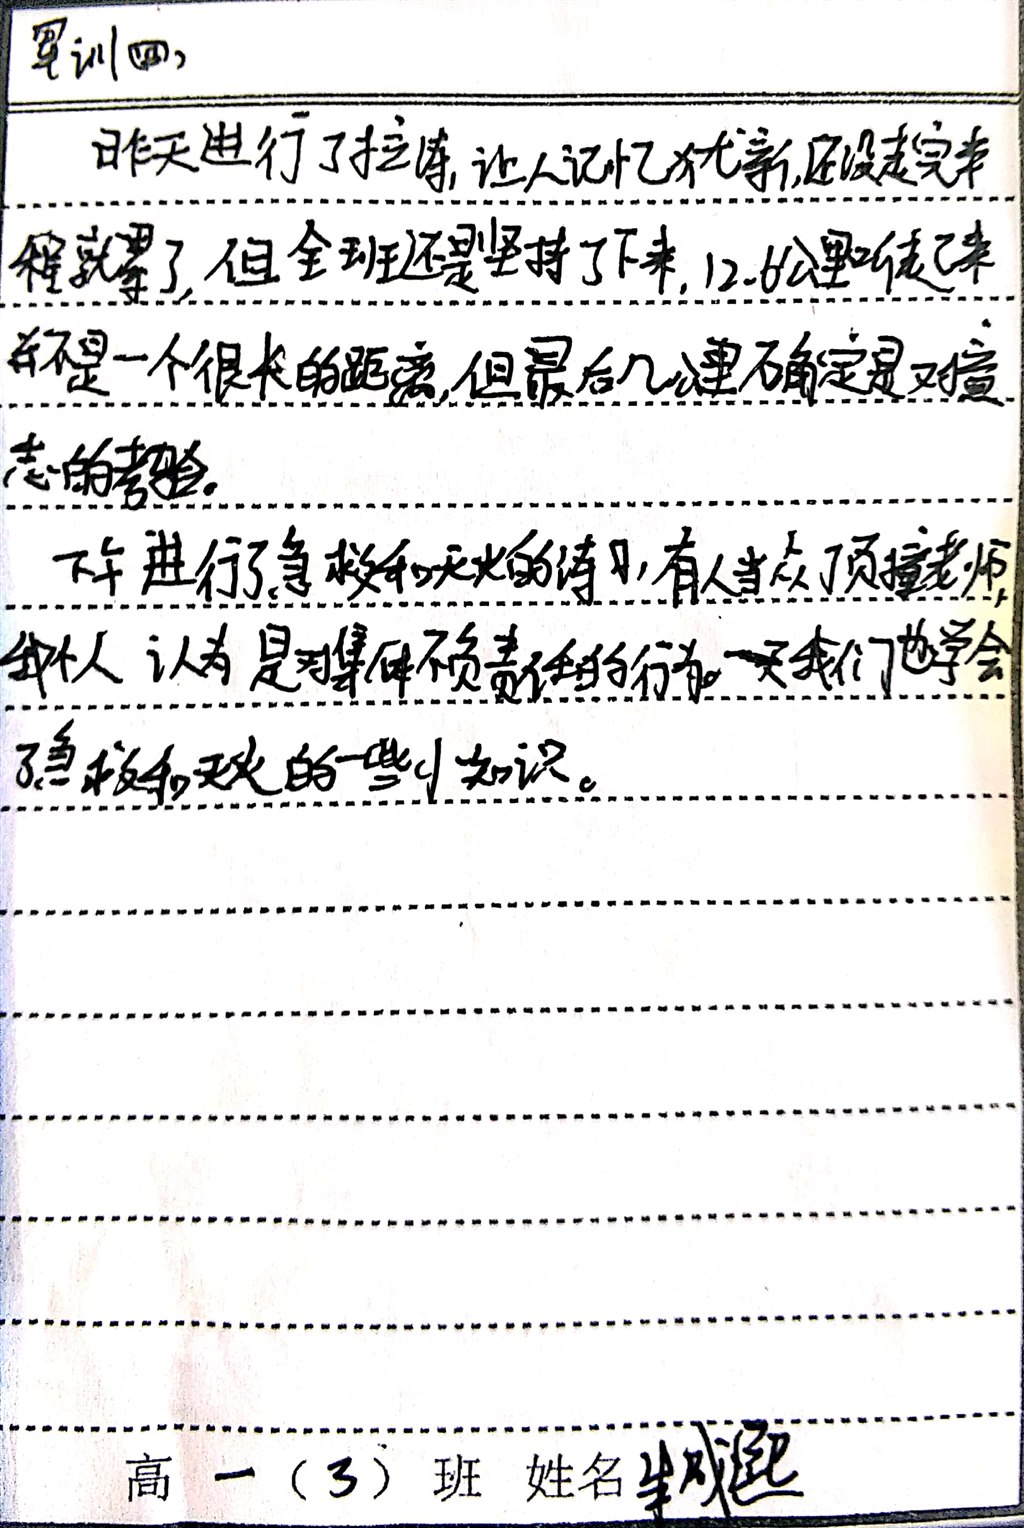 军训四
昨天进行了拉练,让人记忆犹新,还没走完半
程就累了,但全班还是坚持了下来,12.6公里听起来
并不是一个很长的距离,但最后几公里确定是对意
志的考验。
下午进行了急救和灭火的练习,有人当众顶撞老师,
我个人认为是对集体不负责任的行为。一天我们也学会
了急救和灭火的一些小知识。
高一(3)班 姓名